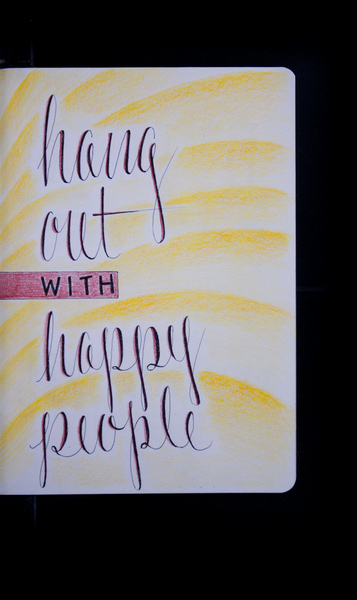 hang
out
WITH
happy
people